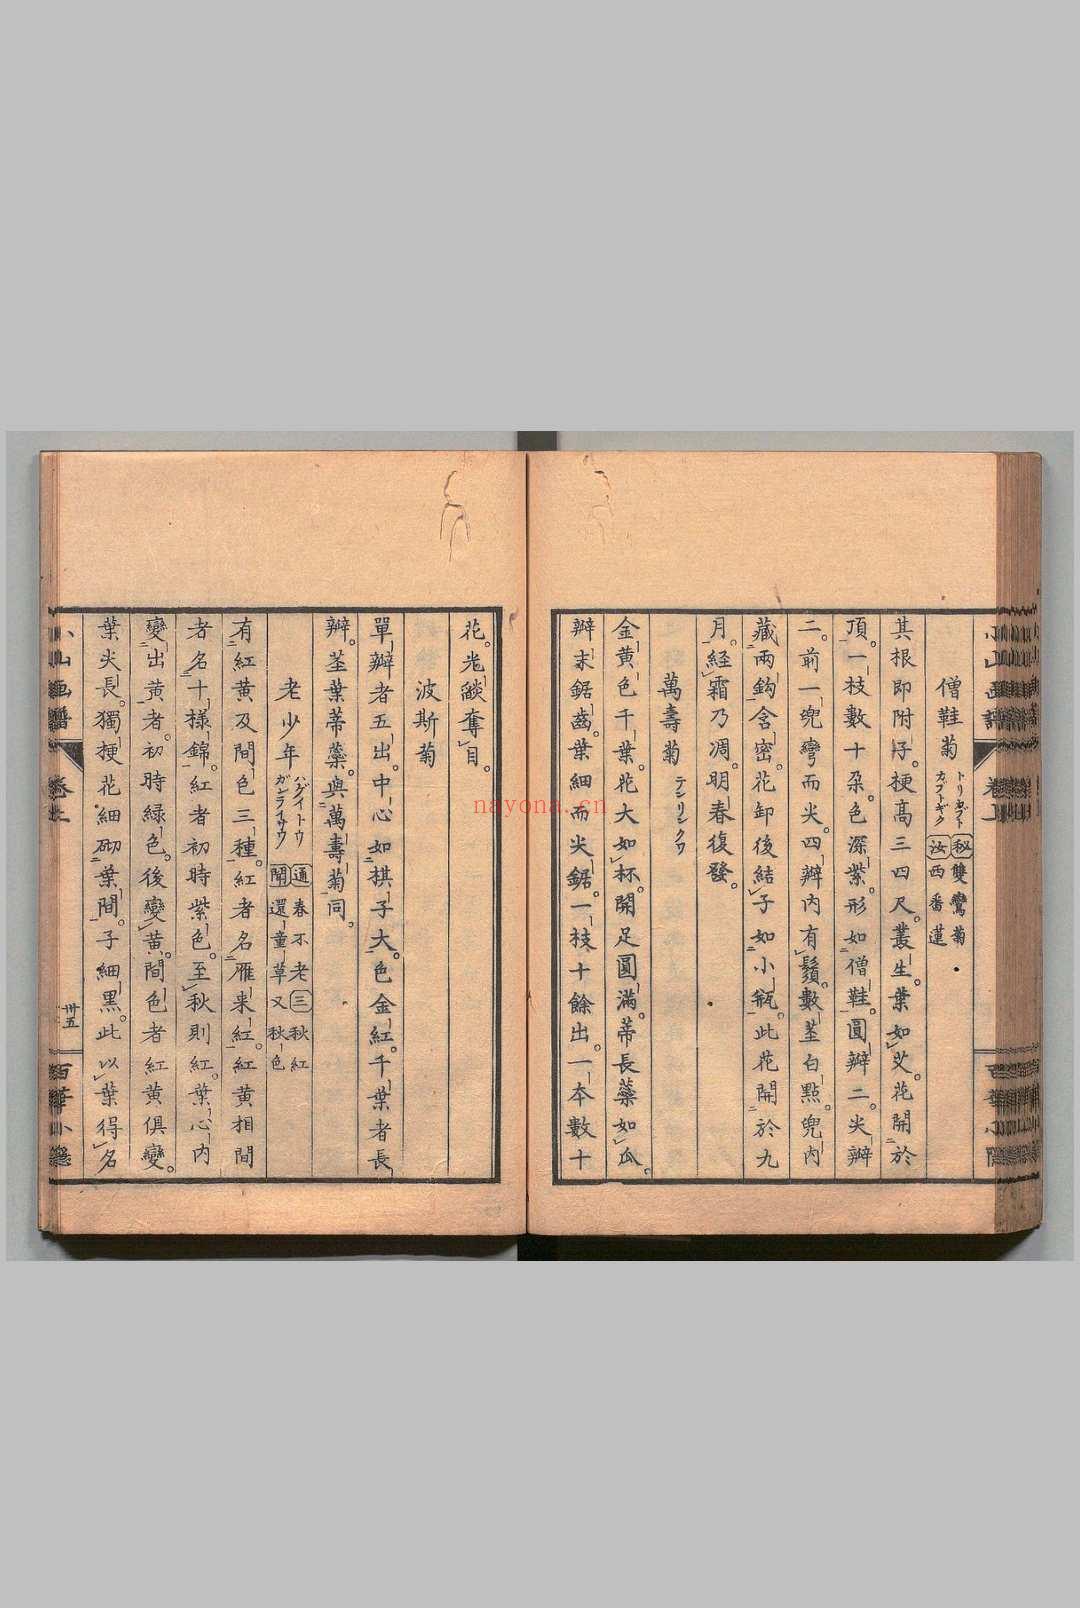 僧鞋菊 トリカブト カブトギク 秘雙鸞菊 汝西番蓮
其根即附子。梗高三四尺。叢生。葉如艾。花開於
頂。一枝數十朶。色深紫。形如僧鞋。圓瓣二。尖瓣
二。前一兜彎而尖。四瓣内有鬚數莖白點。兜内
藏兩鈎含密。花卸後結子如小瓶。此花開於九
月。経霜乃凋。明春復發。
萬壽菊 テンリンクワ
金黄色千葉。花大如杯。開足圓滿。蒂長蘂如瓜。
瓣末鋸齒。葉細而尖鋸。一枝十餘出。一本數十
花。光燄奪目。
波斯菊
單瓣者五出。中心如棋子大。色金紅。千葉者長
瓣。莖葉蒂蘂。與萬壽菊同。
老少年 ハゲイトウ ガンライサウ 通春不老 三秋紅 聞還童草又秋色
有紅黄及間色三種。紅者名雁来紅。紅黄相間
者名十樣錦。紅者初時紫色。至秋則紅。葉心内
變出黄者。初時緑色。後變黄。間色者紅黄俱變。
葉尖長。獨梗花細砌葉間。子細黒。此以葉得名
小山画譜 卷上 卅五
nayona.cn